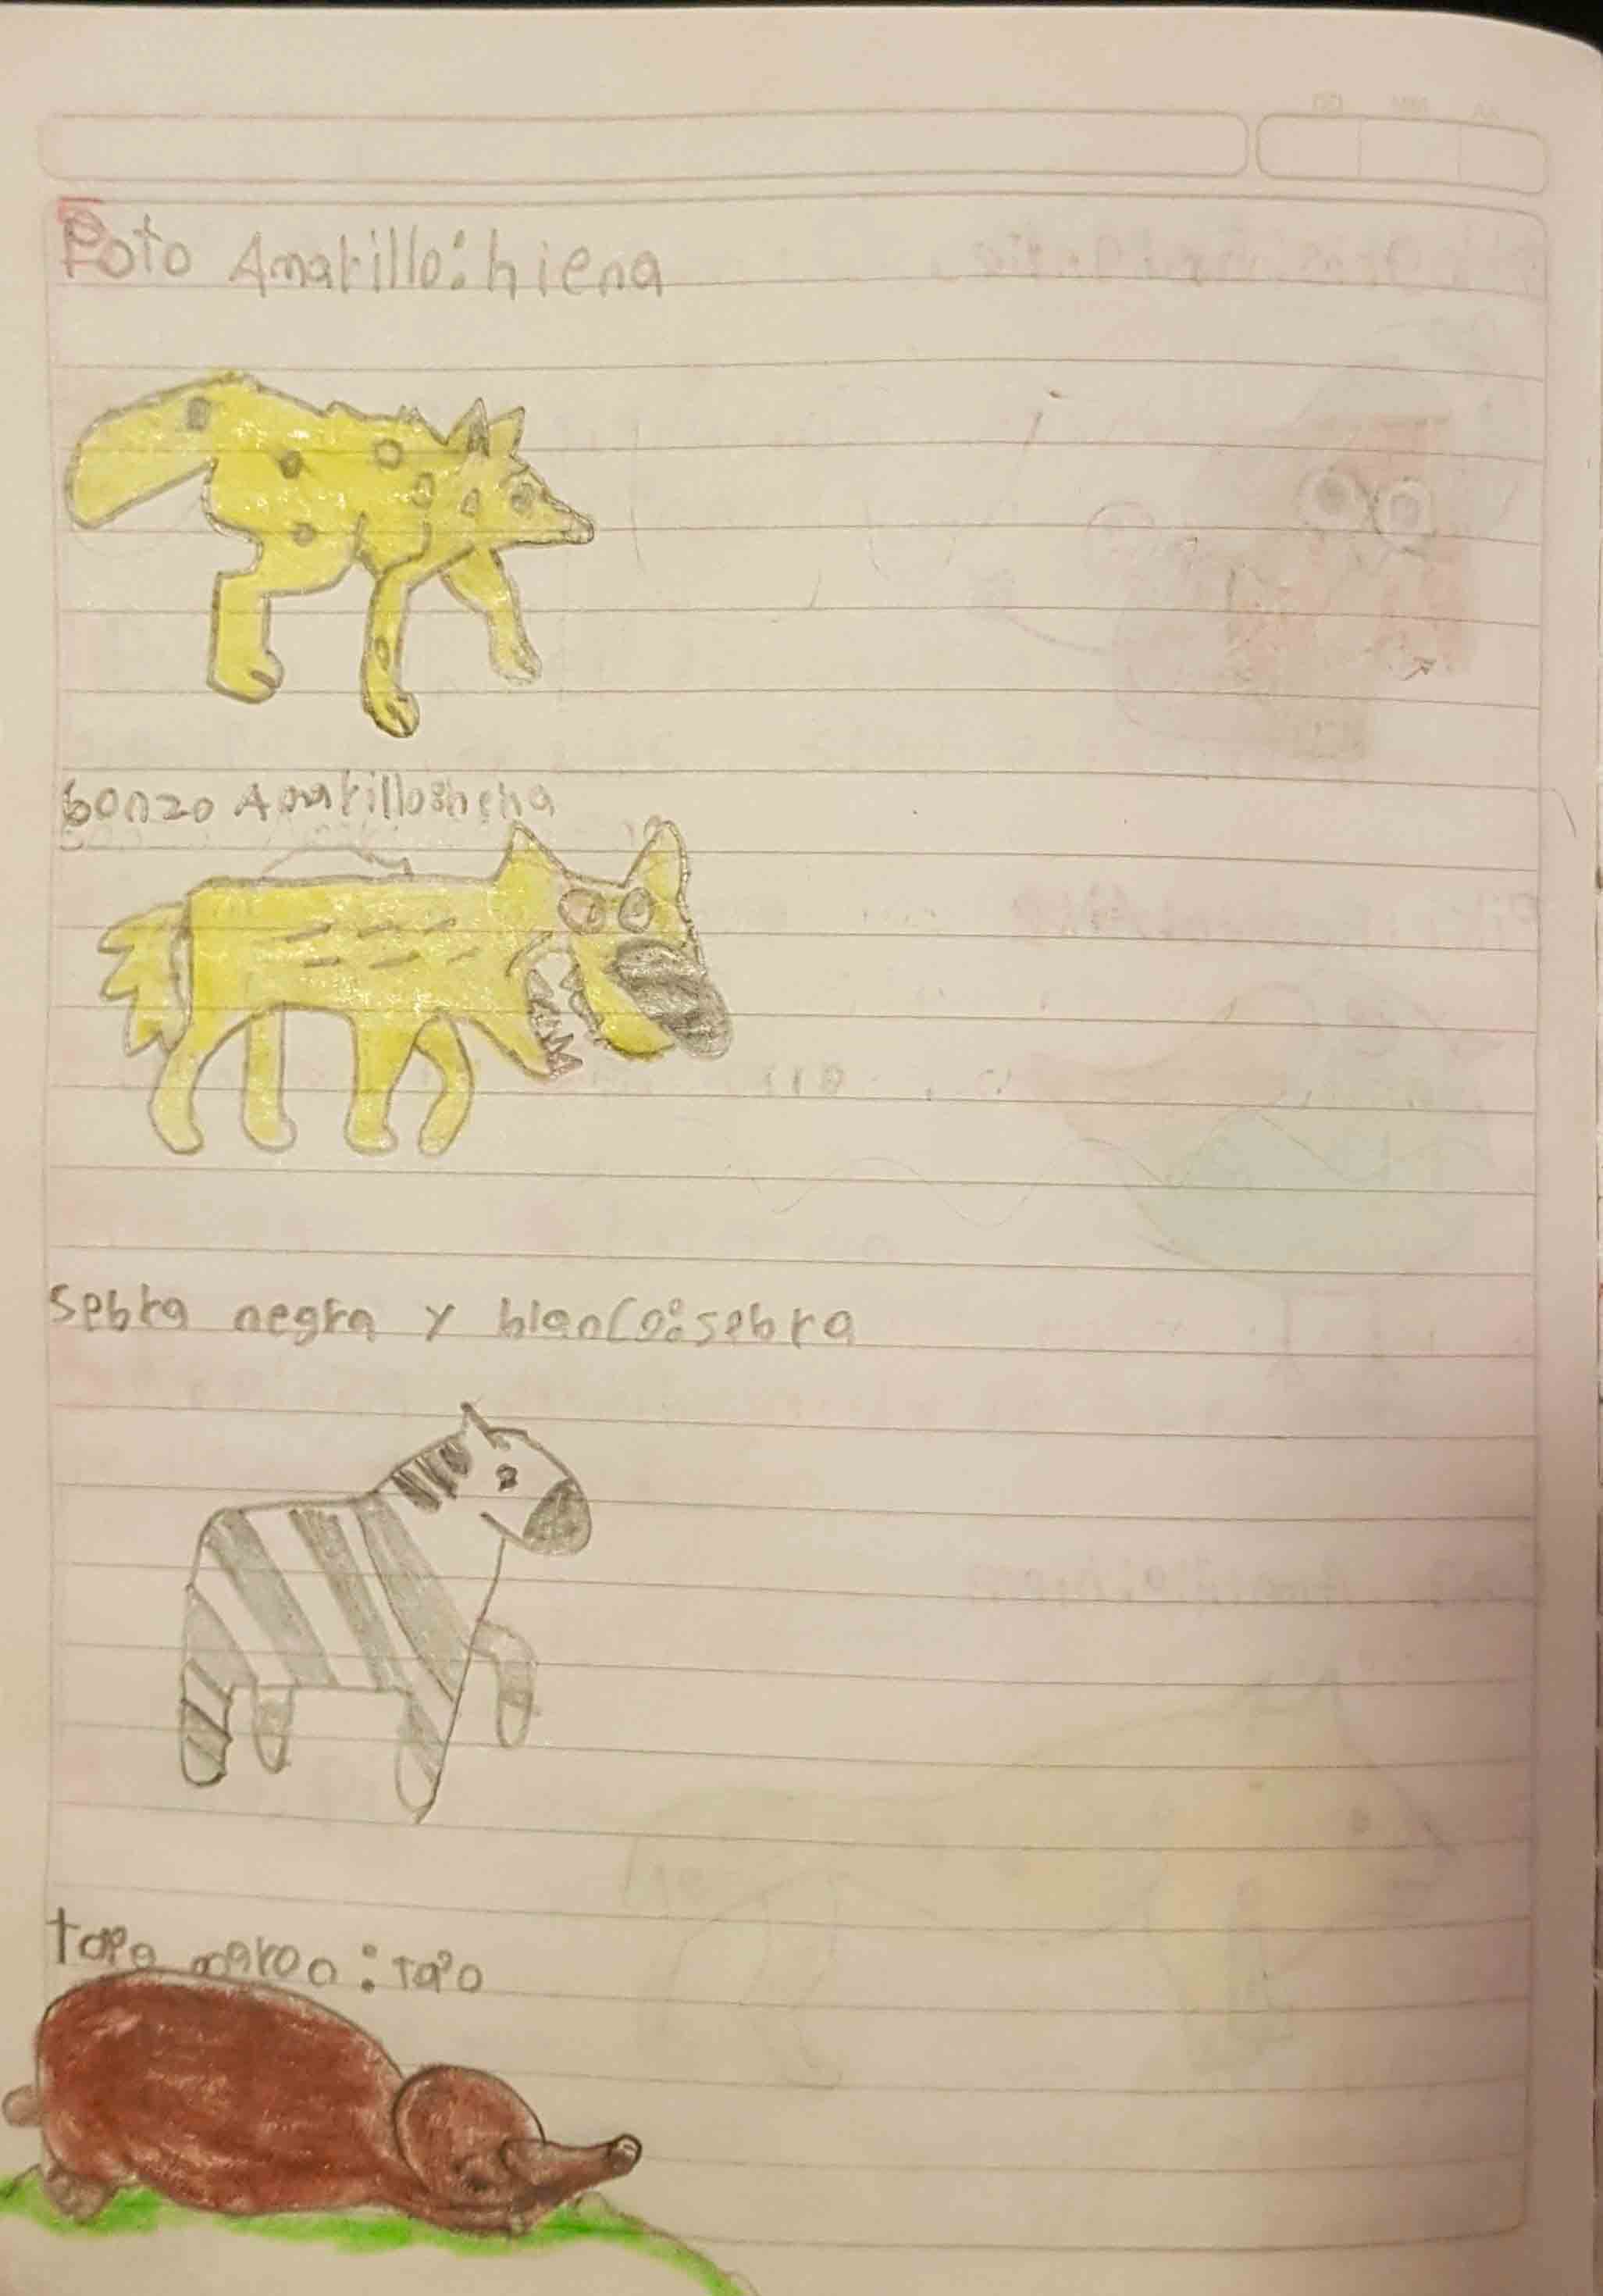 Foto Amarillo:hiena
bonzo Amarillo:hena
sebra negra y blanco:sebra
topo